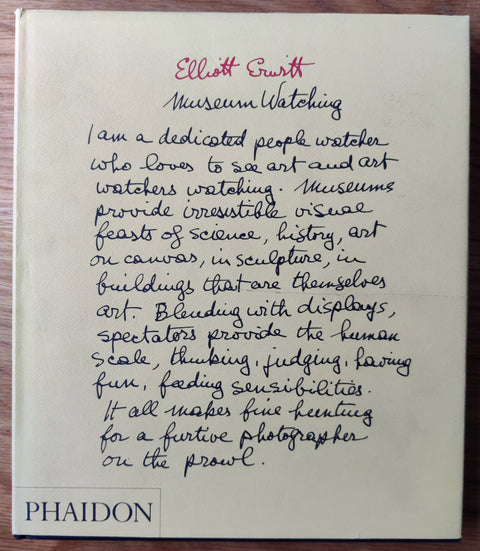 Elliott Erwitt
Museum Watching
I am a dedicated people watcher
who loves to see art and art
watchers watching. Museums
provide irresistible visual
feasts of science, history, art
on canvas, in sculpture, in
buildings that are themselves
art. Blending with displays,
spectators provide the human
scale, thinking, judging, having
fun, feeding sensibilities.
It all makes fine hunting
for a furtive photographer
on the prowl.
PHAIDON